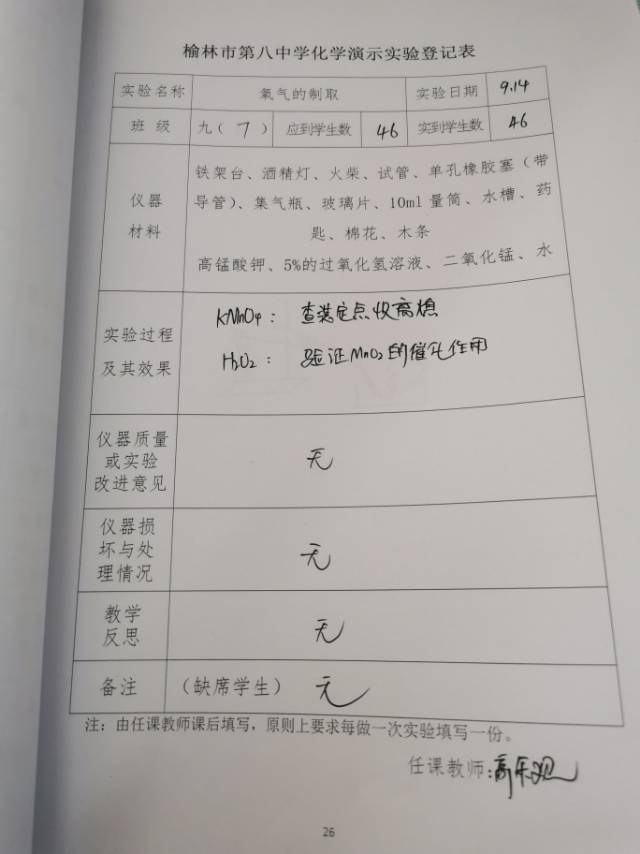 榆林市第八中学化学演示实验登记表
实验名称 氧气的制取 实验日期 9.14
班 级 九（7） 应到学生数 46 实到学生数 46
仪器
材料
铁架台、酒精灯、火柴、试管、单孔橡胶塞（带
导管）、集气瓶、玻璃片、10ml 量筒、水槽、药
匙、棉花、木条
高锰酸钾、5%的过氧化氢溶液、二氧化锰、水
实验过程
及其效果
KMnO4： 查装定点收离熄
H2O2： 验证MnO2的催化作用
仪器质量
或实验
改进意见
无
仪器损
坏与处
理情况
无
教学
反思
无
备注 （缺席学生） 无
注：由任课教师课后填写，原则上要求每做一次实验填写一份。
任课教师：高
26